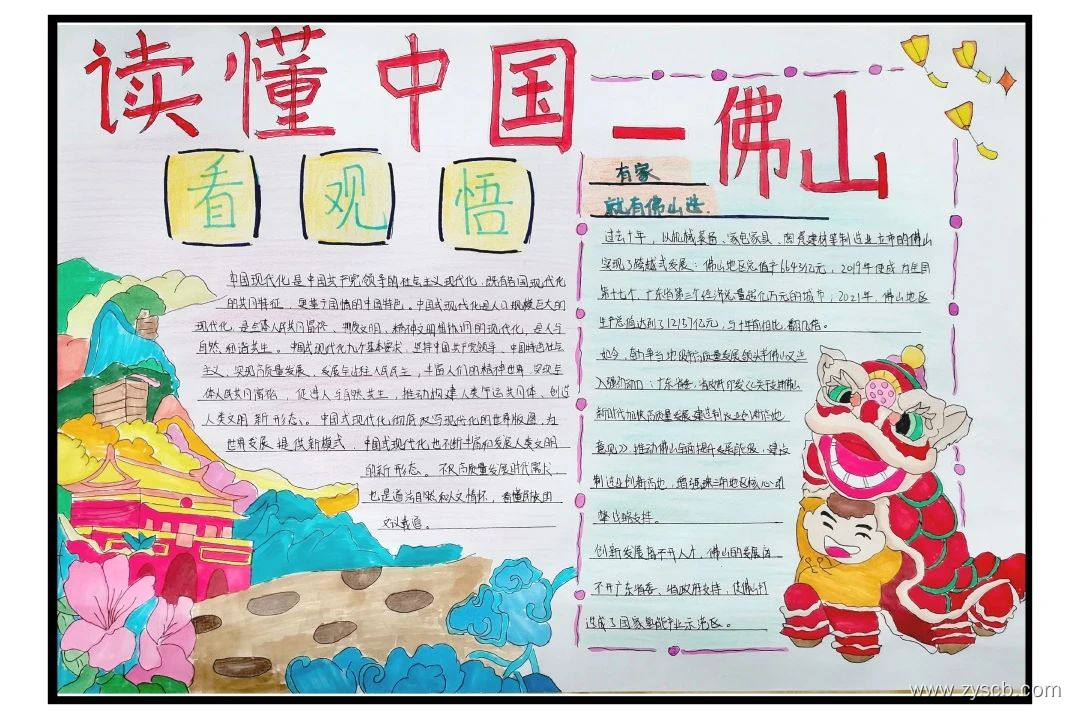 读懂中国
—佛山
看 观 悟
中国现代化是中国共产党领导的社会主义现代化,既有各国现代化
的共同特征,更基于国情的中国特色。中国式现代化是人口规模巨大的
现代化,是全体人民共同富裕、物质文明、精神文明相协调的现代化,是人与
自然和谐共生。中国式现代化九个基本要求,坚持中国共产党领导、中国特色社会
主义,实现高质量发展、发展全过程人民民主,丰富人们的精神世界 实现全
体人民共同富裕,促进人与自然共生、推动构建人类命运共同体、创造
人类文明新形态。中国式现代化彻底改写现代化的世界版图,为
世界发展提供新模式,中国式现代化也不断丰富和发展人类文明
的新形态。不只高质量发展时代需求
也是道法自然和人文情怀,看懂民族团
有家
就有佛山造.
过去十年,以机械装备、家电家具、陶瓷建材等制造业立市的佛山
实现了跨越式发展:佛山地区总值产6643亿元,2019年便成为全国
第十七个,广东省第三个经济总量超亿万元的城市,2021年,佛山地区
生产总值达到了12157亿元,与十年前相比,翻几倍。
新时代加快高质量发展建造制造业创新高地
意见》推动佛山全面提升发展能级,建设
制造业创新高地,
擎战略支持。
创新发展离不开人才,佛山的发展离
不开广东省委、省政府支持,使佛山打
造成了国家